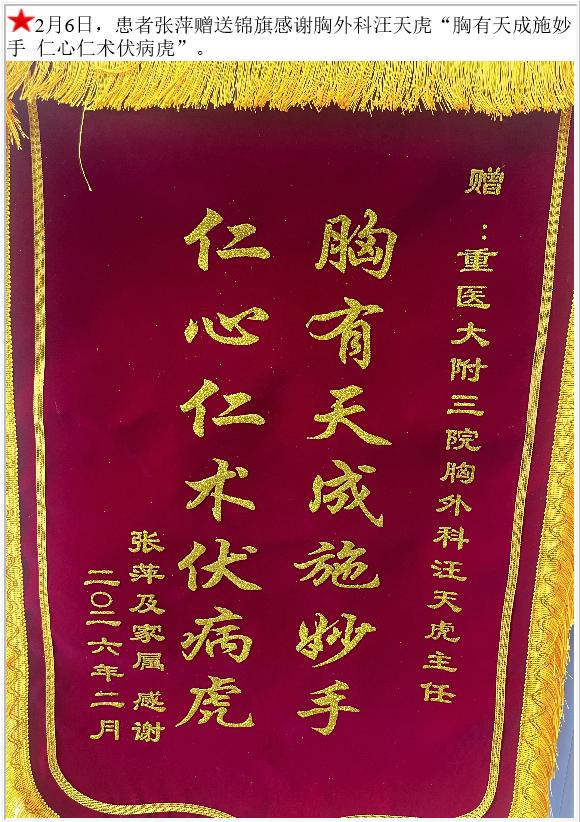 ★2月6日，患者张萍赠送锦旗感谢胸外科汪天虎“胸有天成施妙
手 仁心仁术伏病虎”。
赠：重医大附三院胸外科汪天虎主任
胸有天成施妙手
仁心仁术伏病虎
张萍及家属 感谢
二〇二六年二月